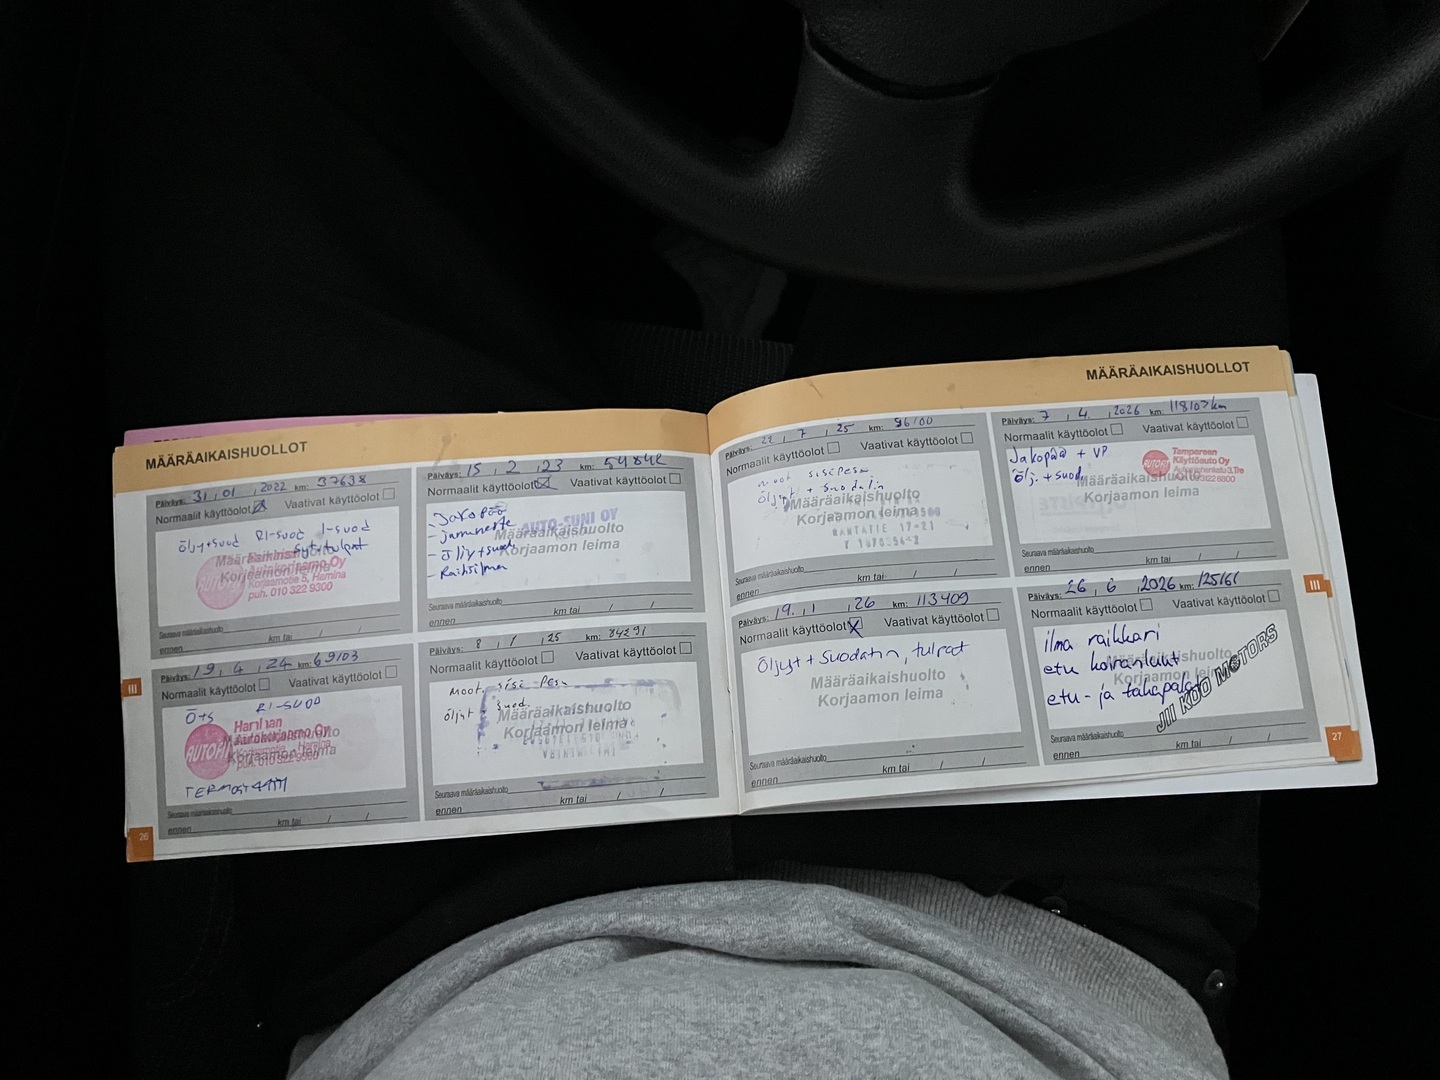 MÄÄRÄAIKAISHUOLLOT
Päiväys: 31, 01, 2022 km: 37638
Normaalit käyttöolot Vaativat käyttöolot
öljy+suod RI-suod I-suod
Määräaikaishuolto
Korjaamon leima
Korjaamotie 5, Hamina
puh. 010 322 9300
Seuraava määräaikaishuolto
ennen km tai / /
Päiväys: 15, 2, 23 km:
Normaalit käyttöolot Vaativat käyttöolot
- Jakopää
- jarruneste
- öljy+suod
- Raitisilma
AUTO-SUNI OY
Määräaikaishuolto
Korjaamon leima
Seuraava määräaikaishuolto
ennen km tai / /
Päiväys: 19, 4, 24 km: 69103
Normaalit käyttöolot Vaativat käyttöolot
Ö+S RI-SUOD
Määräaikaishuolto
Korjaamon leima
Seuraava määräaikaishuolto
ennen km tai / /
Päiväys: 8, 1, 25 km: 84291
Normaalit käyttöolot Vaativat käyttöolot
moot. sisä-pesu
öljyt + suod.
Määräaikaishuolto
Korjaamon leima
Seuraava määräaikaishuolto
ennen km tai / /
III
26
MÄÄRÄAIKAISHUOLLOT
Päiväys: 22, 7, 25 km: 96100
Normaalit käyttöolot Vaativat käyttöolot
moot sisäpesu
öljyt + suodatin
Määräaikaishuolto
Korjaamon leima
Seuraava määräaikaishuolto
ennen km tai / /
Päiväys: 7, 4, 2026 km: 118107km
Normaalit käyttöolot Vaativat käyttöolot
Jakopää + VP
Öljy + suod
AUTOFIT Tampereen
Käyttöauto Oy
Määräaikaishuolto
Korjaamon leima
Seuraava määräaikaishuolto
ennen km tai / /
Päiväys: 19, 1, 26 km: 113409
Normaalit käyttöolot Vaativat käyttöolot
Öljyt + suodatin, tulpat
Määräaikaishuolto
Korjaamon leima
Seuraava määräaikaishuolto
ennen km tai / /
Päiväys: 26, 6, 2026 km:
Normaalit käyttöolot Vaativat käyttöolot
ilma raikkari
etu koiranluut
etu- ja takapalat
Määräaikaishuolto
Korjaamon leima
JII KOO MOTORS
Seuraava määräaikaishuolto
ennen km tai / /
III
27